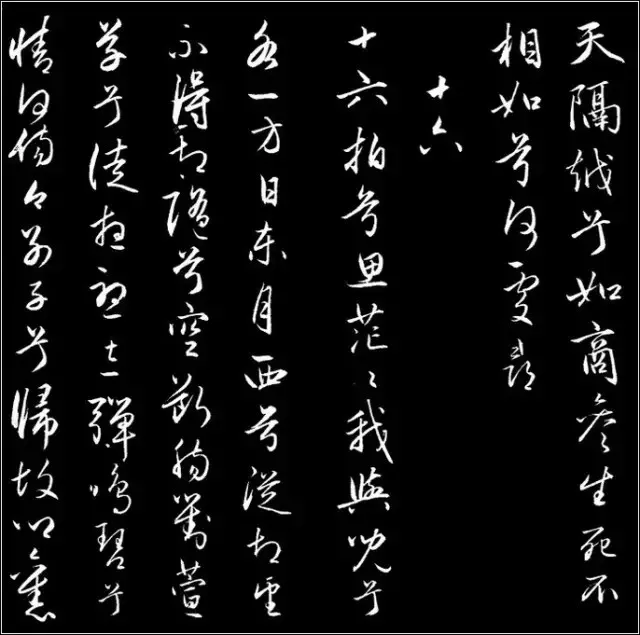 天隔越兮如商參生死不
相知兮何處尋
十六
十六拍兮思茫々我與兒兮
各一方日東月西兮徒相望
不得相隨兮空斷腸對萱
草兮徒想憂忘彈鳴琴兮
情何傷今別子兮歸故鄉舊